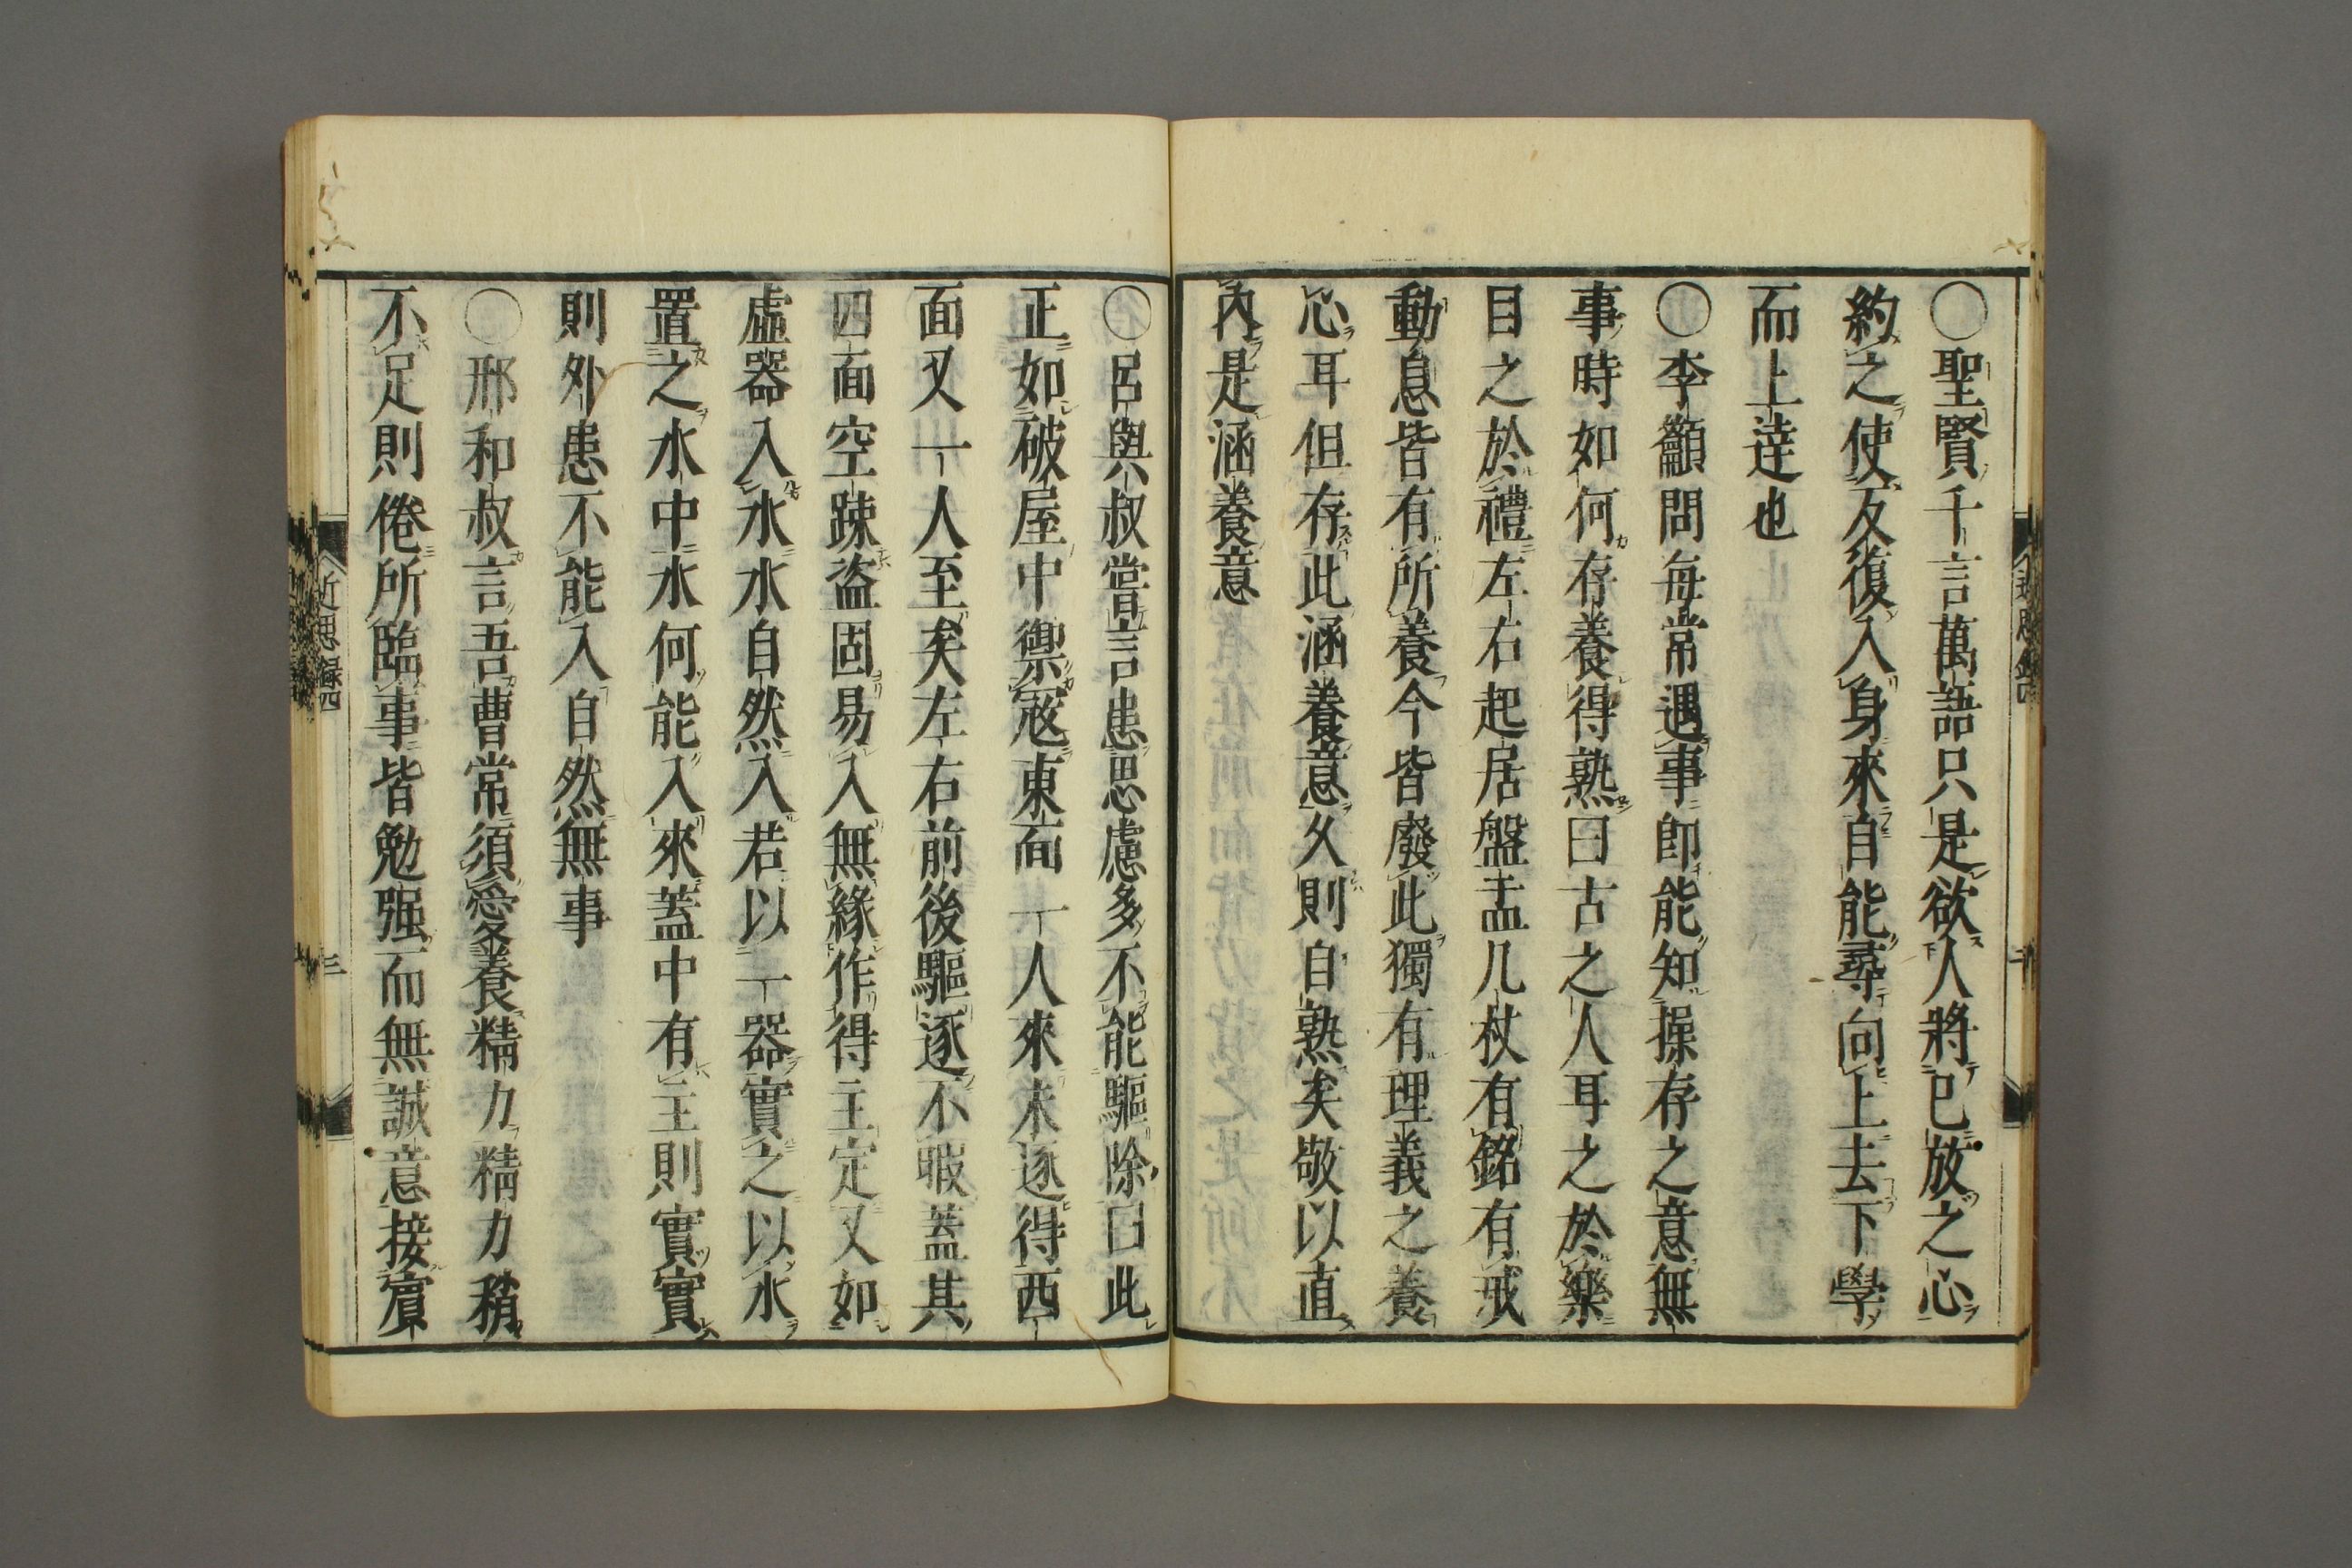 〇聖賢千言萬語只是欲人將已放之心
約之使反復入身來自能尋向上去下學
而上達也
〇李籲問每常遇事即能知操存之意無
事時如何存養得熟曰古之人耳之於樂
目之於禮左右起居盤盂几杖有銘有戒
動息皆有所養今皆廢此獨有理義之養
心耳但存此涵養意久則自熟矣敬以直
內是涵養意
〇呂與叔嘗言患思慮多不能驅除曰此
正如破屋中禦寇東面一人來未逐得西
面又一人至矣左右前後驅逐不暇蓋其
四面空踈盜固易入無緣作得主定又如
虛器入水水自然入若以一器實之以水
置之水中水何能入來蓋中有主則實實
則外患不能入自然無事
〇邢和叔言吾曹常須愛養精力精力稍
不足則倦所臨事皆勉强而無誠意接賓
近思錄四
三